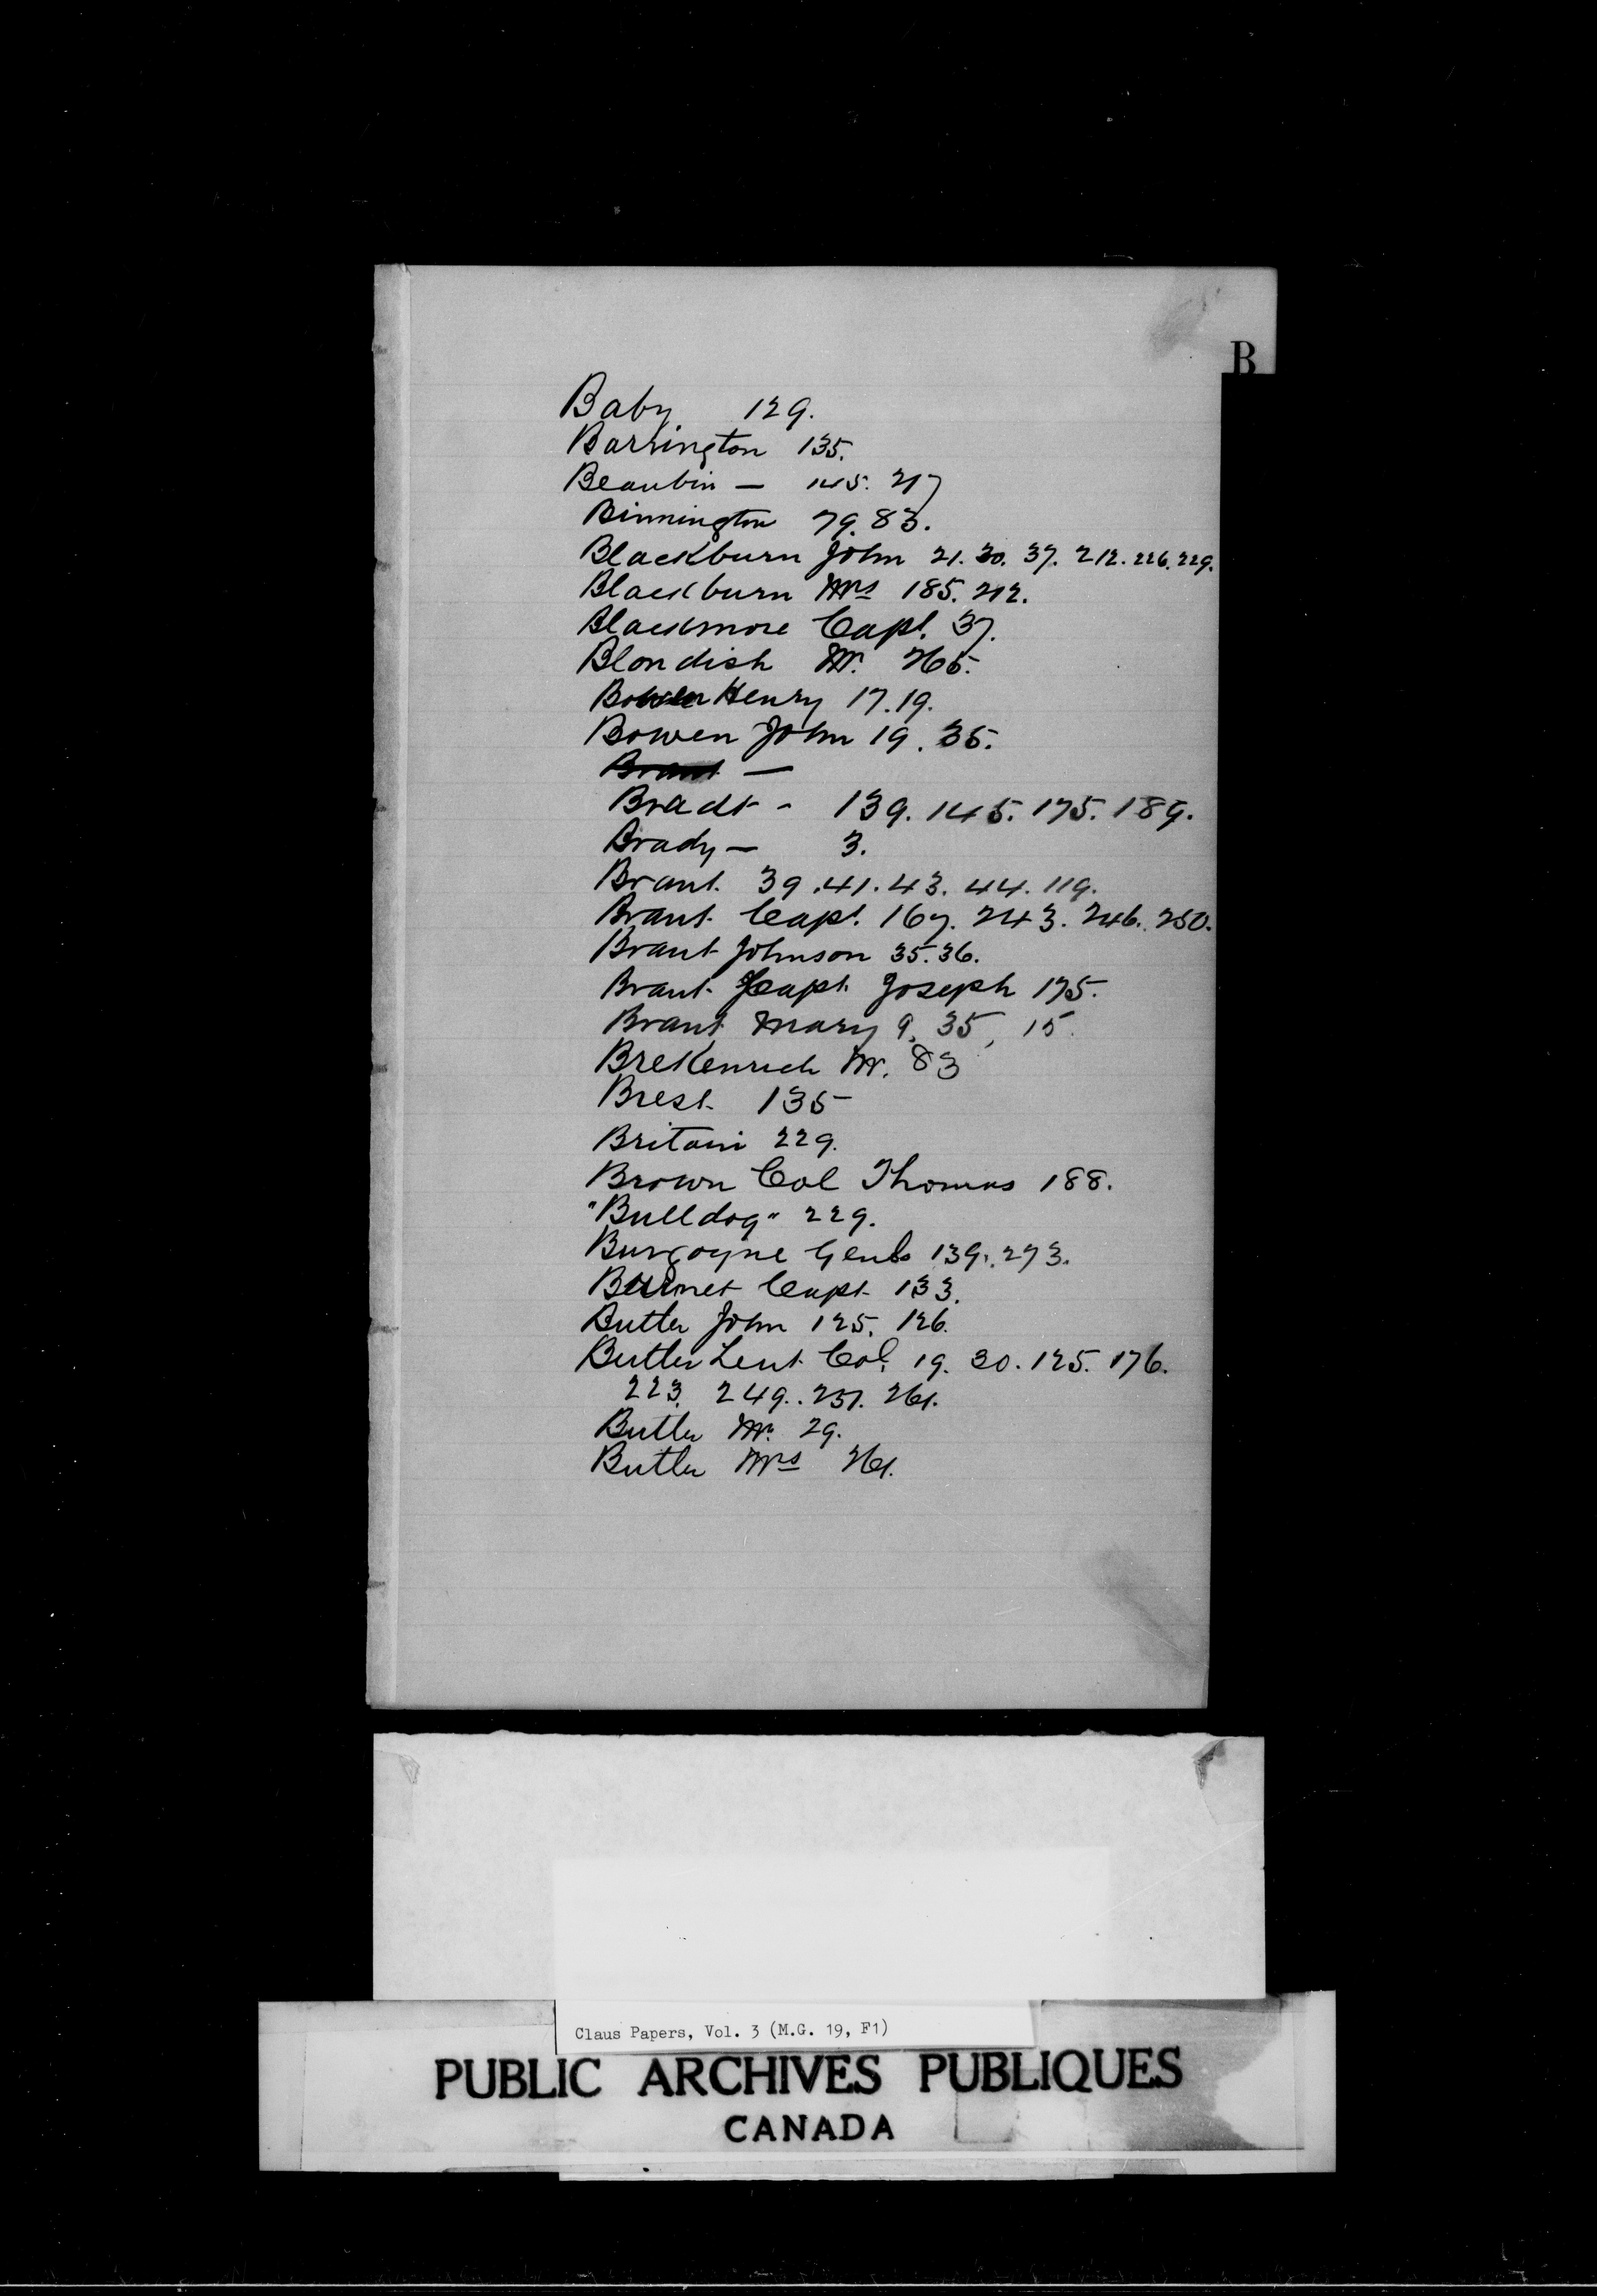 B
Baby 129.
Barrington 135.
Beaubin — 145. 217
Binnington 79. 83.
Blackburn John 21. 30. 37. 212. 226. 229.
Blackburn Mrs 185. 212.
Blackmore Capt. 37.
Blondish Mr. 265.
Bowen Henry 17. 19.
Bowen John 19. 35.
Brant —
Bradt - 139. 145. 175. 189.
Brady — 3.
Brant. 39. 41. 43. 44. 119.
Brant Capt. 167. 243. 246. 250.
Brant Johnson 35. 36.
Brant Capt Joseph 175.
Brant Mary 9, 35, 15.
BreKenrich Mr. 83
Brest 135
Britain 229.
Brown Col Thomas 188.
"Bulldog" 229.
Burgoyne Genl 139. 273.
Burnet Capt 133.
Butler John 125. 126.
Butler Leut. Col. 19. 30. 125. 176.
223. 249. 251. 261.
Butler Mr. 29.
Butler Mrs 261.
Claus Papers, Vol. 3 (M.G. 19, F1)
PUBLIC ARCHIVES PUBLIQUES
CANADA